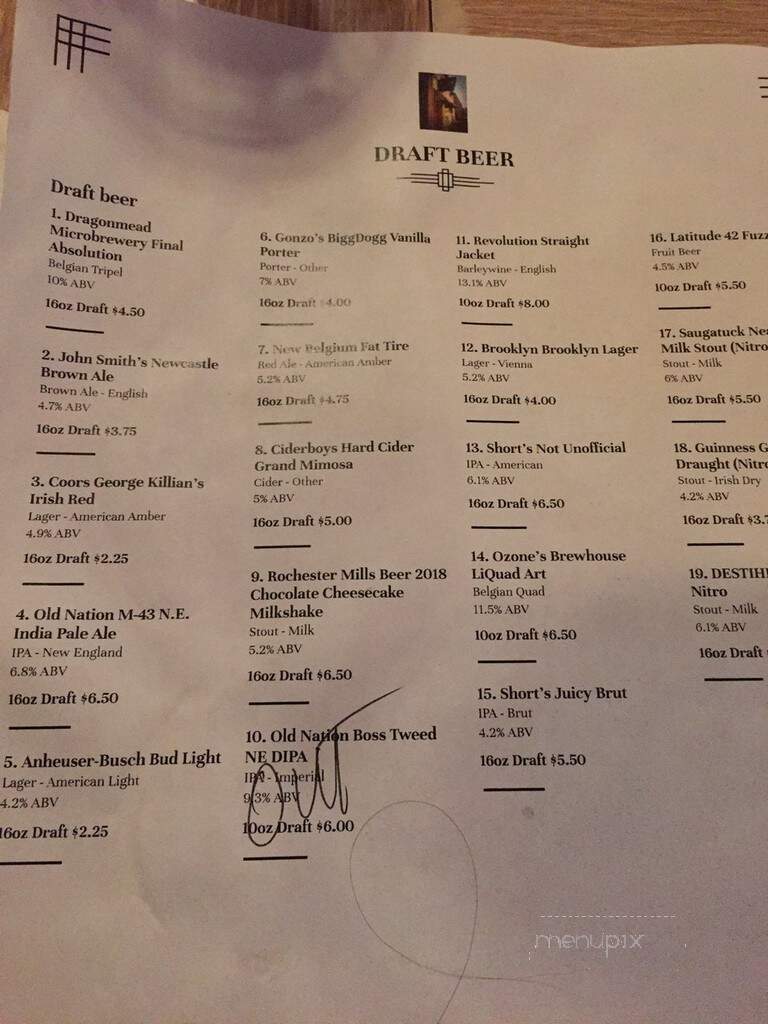 DRAFT BEER
Draft beer
1. Dragonmead
Microbrewery Final
Absolution
Belgian Tripel
10% ABV
16oz Draft $4.50
2. John Smith's Newcastle
Brown Ale
Brown Ale - English
4.7% ABV
16oz Draft $3.75
3. Coors George Killian's
Irish Red
Lager - American Amber
4.9% ABV
16oz Draft $2.25
4. Old Nation M-43 N.E.
India Pale Ale
IPA - New England
6.8% ABV
16oz Draft $6.50
5. Anheuser-Busch Bud Light
Lager - American Light
4.2% ABV
16oz Draft $2.25
6. Gonzo's BiggDogg Vanilla
Porter
Porter - Other
7% ABV
16oz Draft $4.00
7. New Belgium Fat Tire
Red Ale - American Amber
5.2% ABV
16oz Draft $4.75
8. Ciderboys Hard Cider
Grand Mimosa
Cider - Other
5% ABV
16oz Draft $5.00
9. Rochester Mills Beer 2018
Chocolate Cheesecake
Milkshake
Stout - Milk
5.2% ABV
16oz Draft $6.50
10. Old Nation Boss Tweed
NE DIPA
IPA - Imperial
9.3% ABV
10oz Draft $6.00
out
11. Revolution Straight
Jacket
Barleywine - English
13.1% ABV
10oz Draft $8.00
12. Brooklyn Brooklyn Lager
Lager - Vienna
5.2% ABV
16oz Draft $4.00
13. Short's Not Unofficial
IPA - American
6.1% ABV
16oz Draft $6.50
14. Ozone's Brewhouse
LiQuad Art
Belgian Quad
11.5% ABV
10oz Draft $6.50
15. Short's Juicy Brut
IPA - Brut
4.2% ABV
16oz Draft $5.50
16. Latitude 42 Fuzz
Fruit Beer
4.5% ABV
10oz Draft $5.50
17. Saugatuck Nea
Milk Stout (Nitro
Stout - Milk
6% ABV
16oz Draft $5.50
18. Guinness G
Draught (Nitro
Stout - Irish Dry
4.2% ABV
16oz Draft $3.7
19. DESTIHL
Nitro
Stout - Milk
6.1% ABV
16oz Draft
menupix